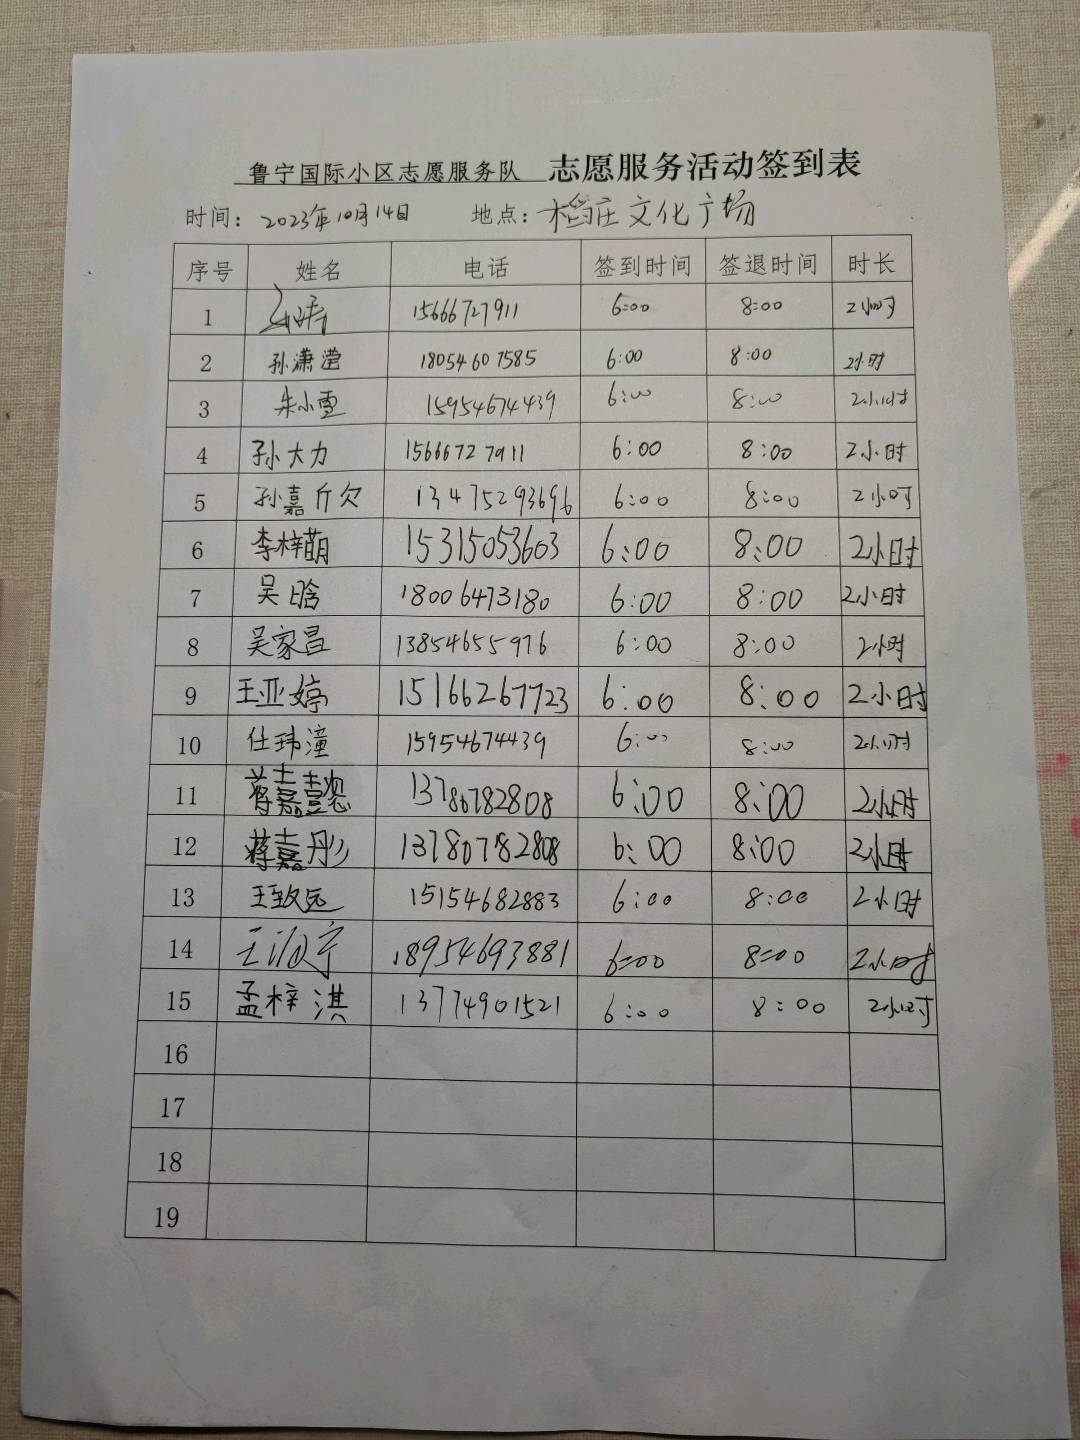 鲁宁国际小区志愿服务队 志愿服务活动签到表
时间：2023年10月14日 地点：稻庄文化广场
序号 姓名 电话 签到时间 签退时间 时长
1 15666727911 6:00 8:00 2小时
2 孙潇滢 18054607585 6:00 8:00 2小时
3 朱小雪 15954674439 6:00 8:00 2小时
4 孙大力 15666727911 6:00 8:00 2小时
5 孙嘉欣 13475293696 6:00 8:00 2小时
6 李梓萌 15315053603 6:00 8:00 2小时
7 吴晗 18006473180 6:00 8:00 2小时
8 吴家昌 13854655976 6:00 8:00 2小时
9 王亚婷 15166267723 6:00 8:00 2小时
10 任玮潼 15954674439 6:00 8:00 2小时
11 蒋嘉懿 13780782808 6:00 8:00 2小时
12 蒋嘉彤 13780782808 6:00 8:00 2小时
13 王致远 15154682883 6:00 8:00 2小时
14 18954693881 6:00 8:00 2小时
15 孟梓淇 13774901521 6:00 8:00 2小时
16
17
18
19